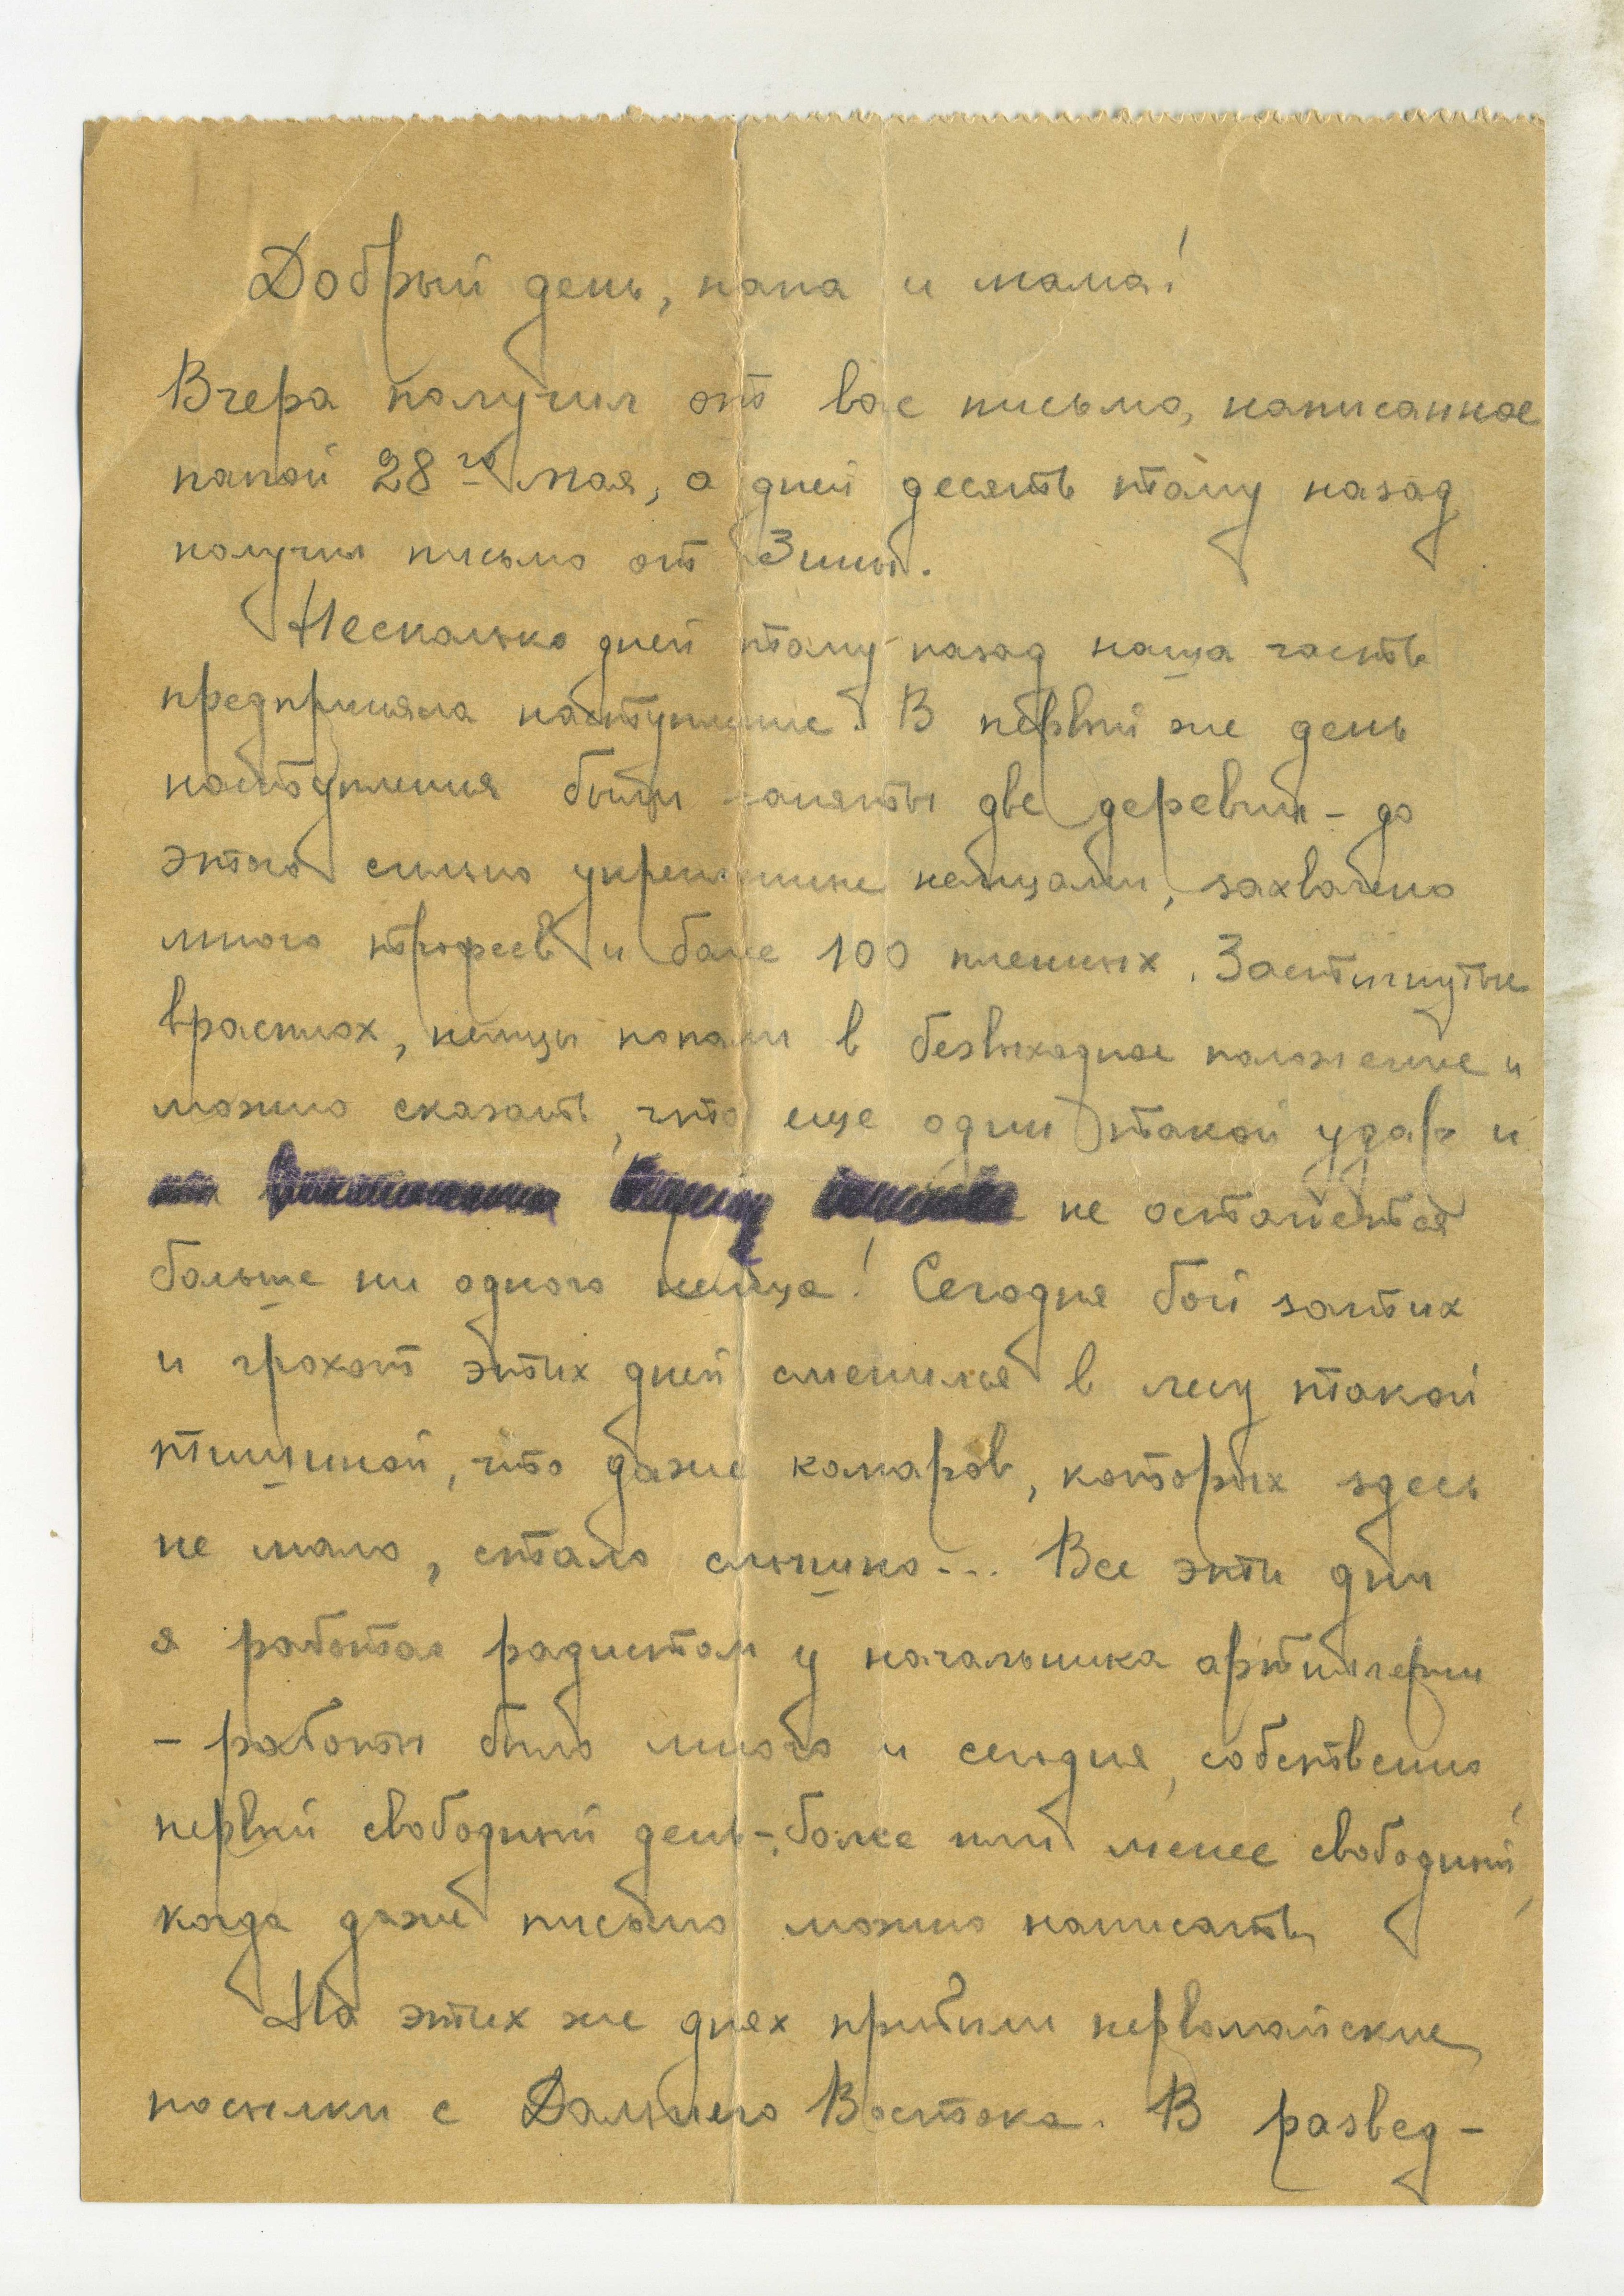 Добрый день, папа и мама!
Вчера получил от вас письмо, написанное
папой 28го мая, а дней десять тому назад
получил письмо от Зины.
Несколько дней тому назад наша часть
предприняла наступление. В первый же день
наступления были заняты две деревни – до
этого сильно укрепленные немцами, захвачено
много трофеев и более 100 пленных. Застигнутые
врасплох, немцы попали в безвыходное положение и
можно сказать, что еще один такой удар и
не останется
больше ни одного немца! Сегодня бой затих
и грохот этих дней сменился в лесу такой
тишиной, что даже комаров, которых здесь
не мало, стало слышно... Все эти дни
я работал радистом у начальника артиллерии
– работы было много и сегодня, собственно
первый свободный день –, более или менее свободный,
когда даже письмо можно написать,
На этих же днях прибыли первомайские
посылки с Дальнего Востока. В развед-